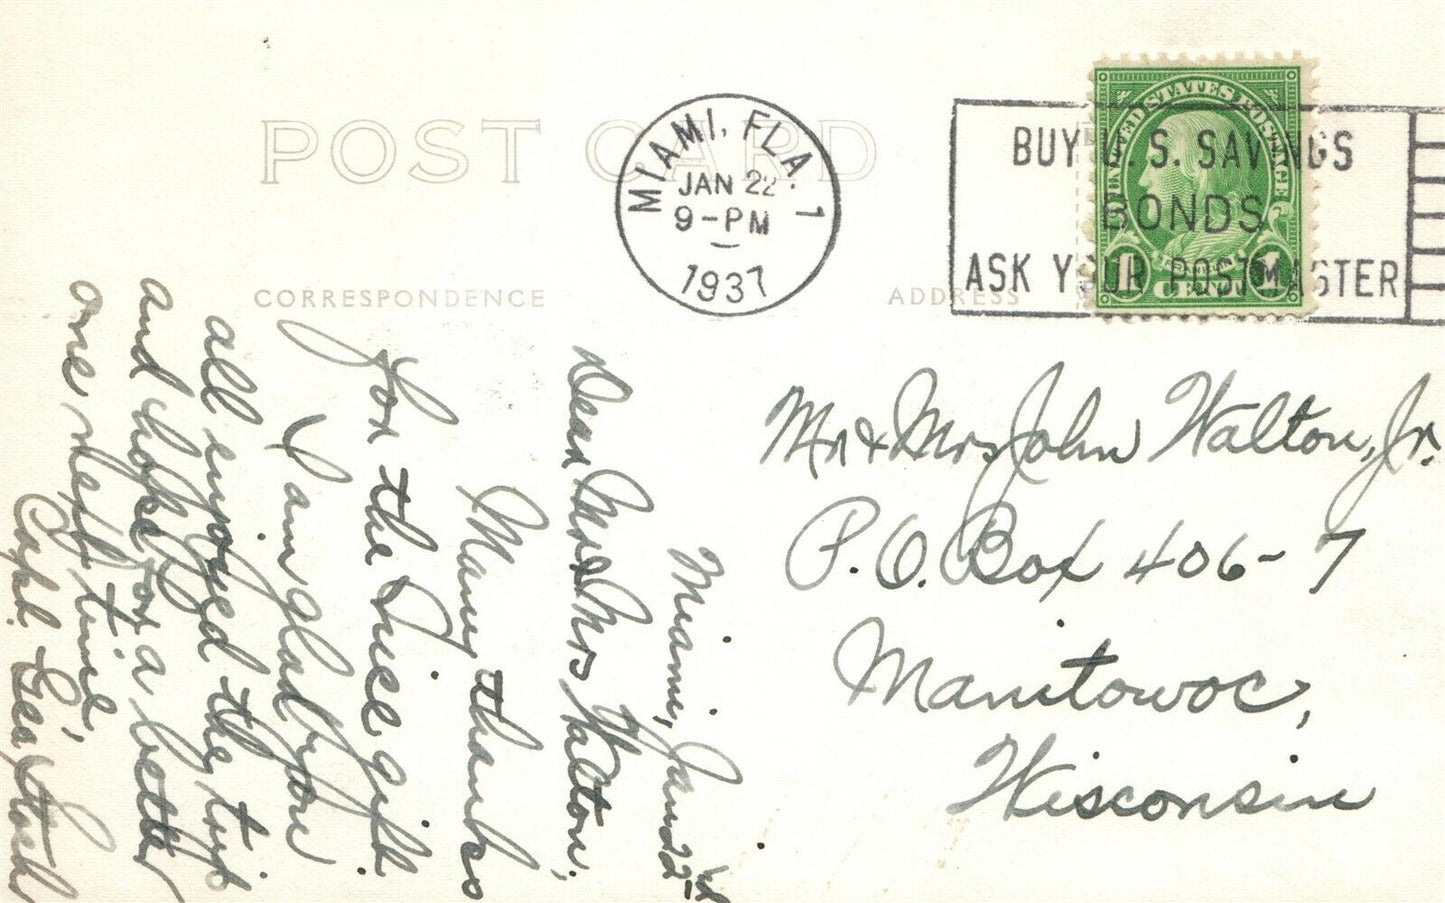 POST CARD
CORRESPONDENCE
ADDRESS
MIAMI, FLA. 1
JAN 22
9-PM
1937
BUY U. S. SAVINGS
BONDS
ASK YOUR POSTMASTER
UNITED STATES POSTAGE
1 CENT 1
Mr & Mrs John Walton, Jr.
P.O. Box 406-7
Manitowoc,
Wisconsin
Miami, Jan 22
Dear Mr & Mrs Walton,
Many thanks
for the nice gift
I am glad you
all enjoyed the trip
and hope for a better
one next time,
Capt. Geo Stock